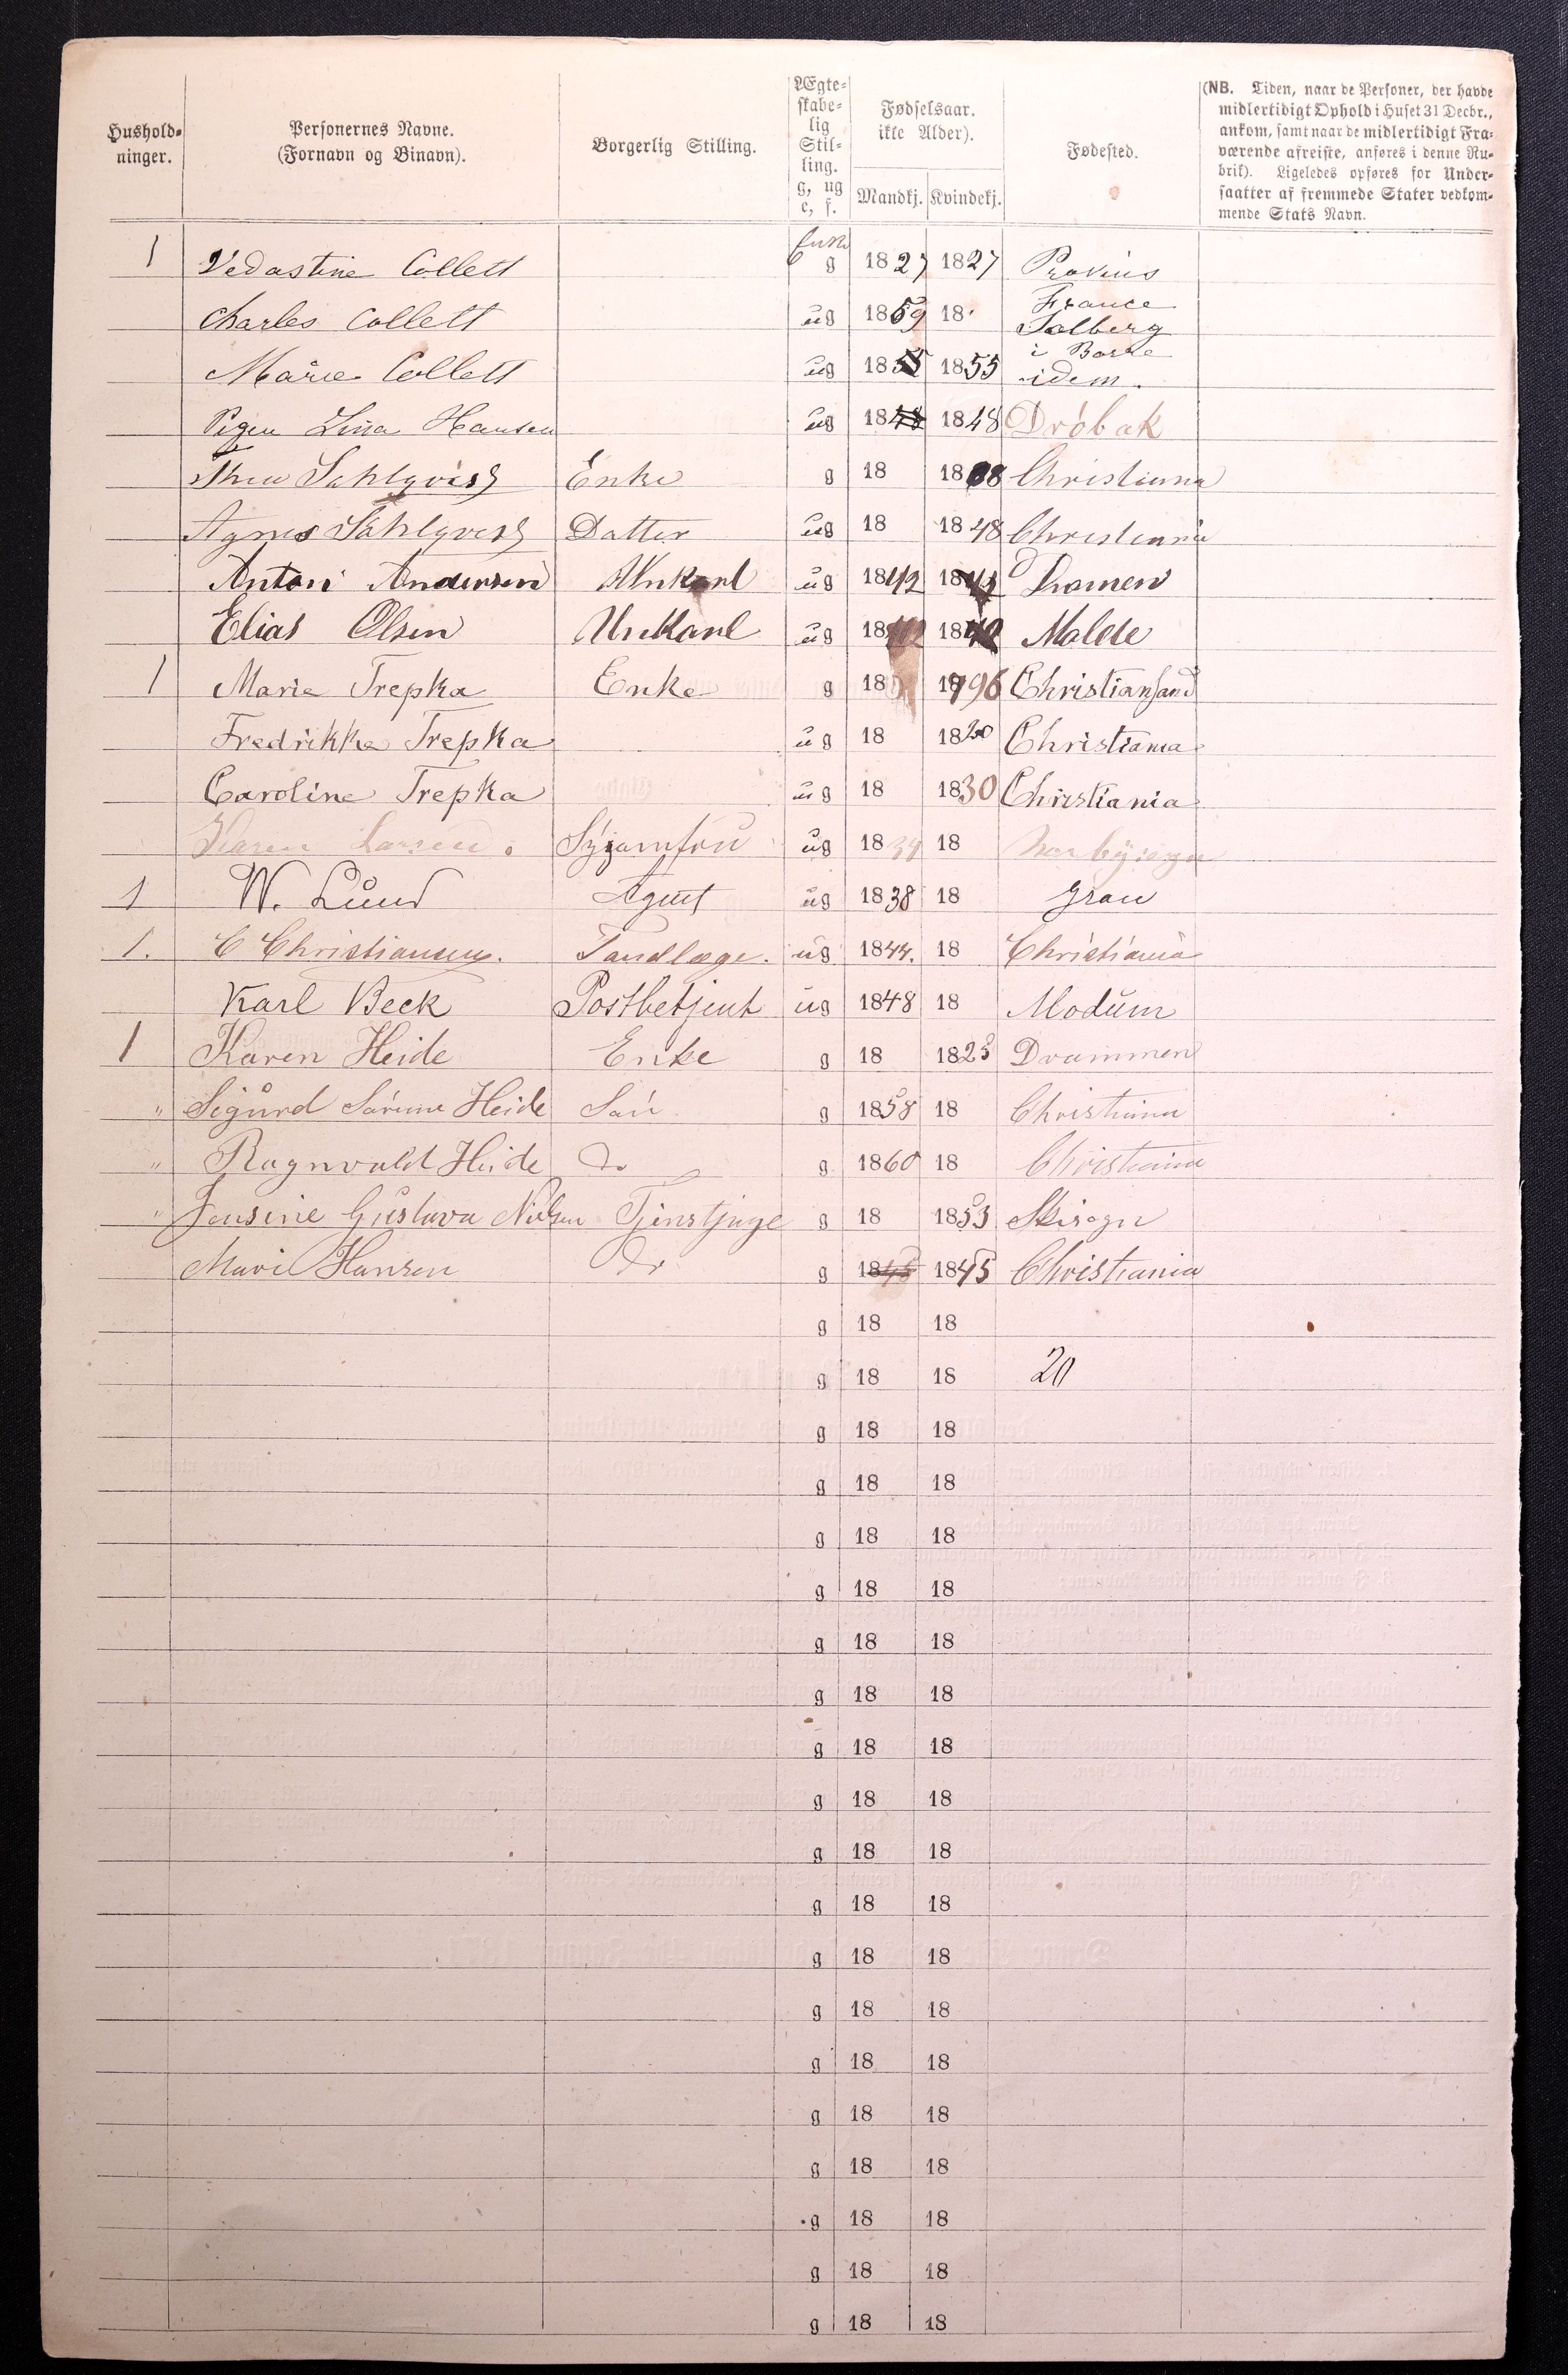 Hushold-
ninger.
Personernes Navne.
(Fornavn og Binavn).
Borgerlig Stilling.
Ægte-
skabe-
lig
Stil-
ling.
g, ug
e, f.
Fødselsaar.
ikke Alder).
Mandkj. Kvindekj.
Fødested.
(NB. Tiden, naar de Personer, der havde
midlertidigt Ophold i Huset 31 Decbr.,
ankom, samt naar de midlertidigt Fra-
værende afreiste, anføres i denne Ru-
brik). Ligeledes opføres for Under-
saatter af fremmede Stater vedkom-
mende Stats Navn.
1 Vedastine Collett g 1827 1827 Provins
France
Charles Collett ug 1859 18 Solberg
i Borre
Marie Collett ug 1855 1855 idem.
Pigen Lina Hansen ug 1848 1848 Dröbak
Thea Sahlqvist Enke g 18 18 Christiania
Agnes Sahlqvist Datter ug 18 1848 Christiania
Anton Andersen ug 1842 1842
Elias Olsen ug 18 18 Molde
1 Marie Trepka Enke g 18 1796 Christiansand
Fredrikke Trepka ug 18 1820 Christiania
Caroline Trepka ug 18 1830 Christiania
Karen Larsen. ug 18 18
1 W. Lund Agent ug 1838 18 Gran
1. C Christiansen. Tandlæge. ug 1844. 18 Christiania
Karl Beck Postbetjent ug 1848 18 Modum
1 Karen Heide Enke g 18 1825 Drammen
" Sigurd Heide Sön g 1858 18 Christiania
" Ragnvald Heide Do g 1860 18 Christiania
" Jensine Gustava Nielsen Tjenstpige g 18 1853 Skisogn
Mari Hansen Do g 1845 1845 Christiania
g 18 18
g 18 18 20
g 18 18
g 18 18
g 18 18
g 18 18
g 18 18
g 18 18
g 18 18
g 18 18
g 18 18
g 18 18
g 18 18
g 18 18
g 18 18
g 18 18
g 18 18
g 18 18
g 18 18
g 18 18